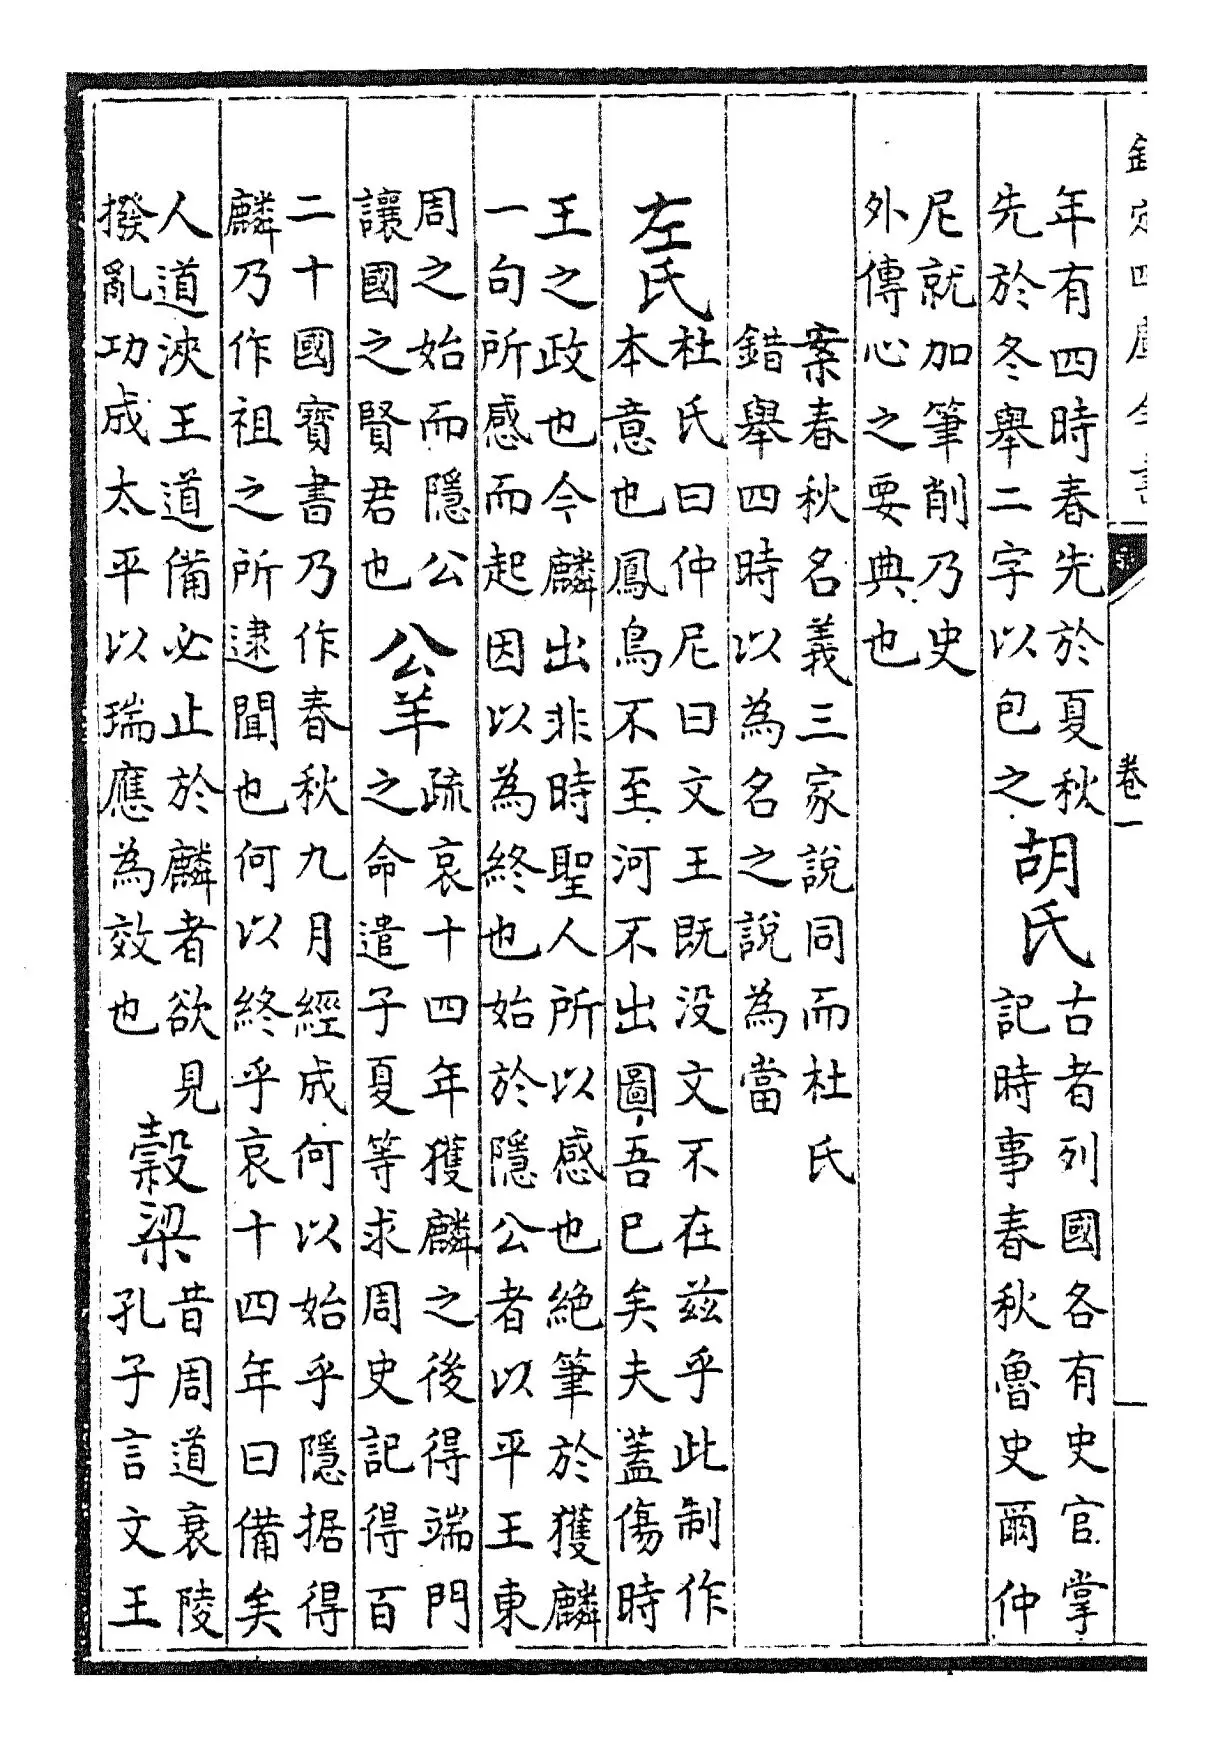 欽定四庫全書
卷一
年有四時春先於夏秋
先於冬舉二字以包之
胡氏
古者列國各有史官掌
記時事春秋魯史爾仲
尼就加筆削乃史
外傳心之要典也
案春秋名義三家說同而杜氏
錯舉四時以為名之說為當
左氏
杜氏曰仲尼曰文王既没文不在兹乎此制作
本意也鳳鳥不至河不出圖吾已矣夫蓋傷時
王之政也今麟出非時聖人所以感也絶筆於獲麟
一句所感而起因以為終也始於隱公者以平王東
周之始而隱公
讓國之賢君也
公羊
疏哀十四年獲麟之後得端門
之命遣子夏等求周史記得百
二十國寶書乃作春秋九月經成何以始乎隱据得
麟乃作祖之所逮聞也何以終乎哀十四年曰備矣
人道浹王道備必止於麟者欲見
撥亂功成太平以瑞應為效也
穀梁
昔周道衰陵
孔子言文王